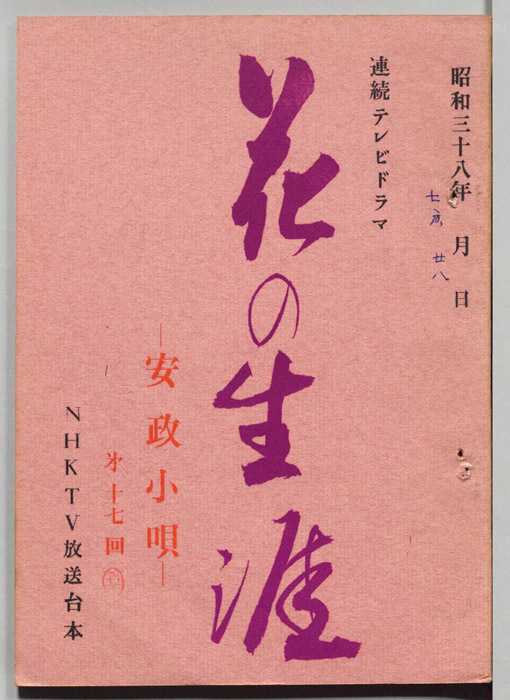 昭和三十八年　月　日
七　廿八
連続テレビドラマ
花の生涯
―安政小唄―
第十七回
NHKTV放送台本